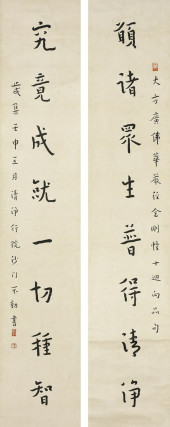 大方廣佛華嚴經金剛幢十迴向品句
願諸眾生普得清淨
究竟成就一切種智
歲集壬申月清淨行院沙門書